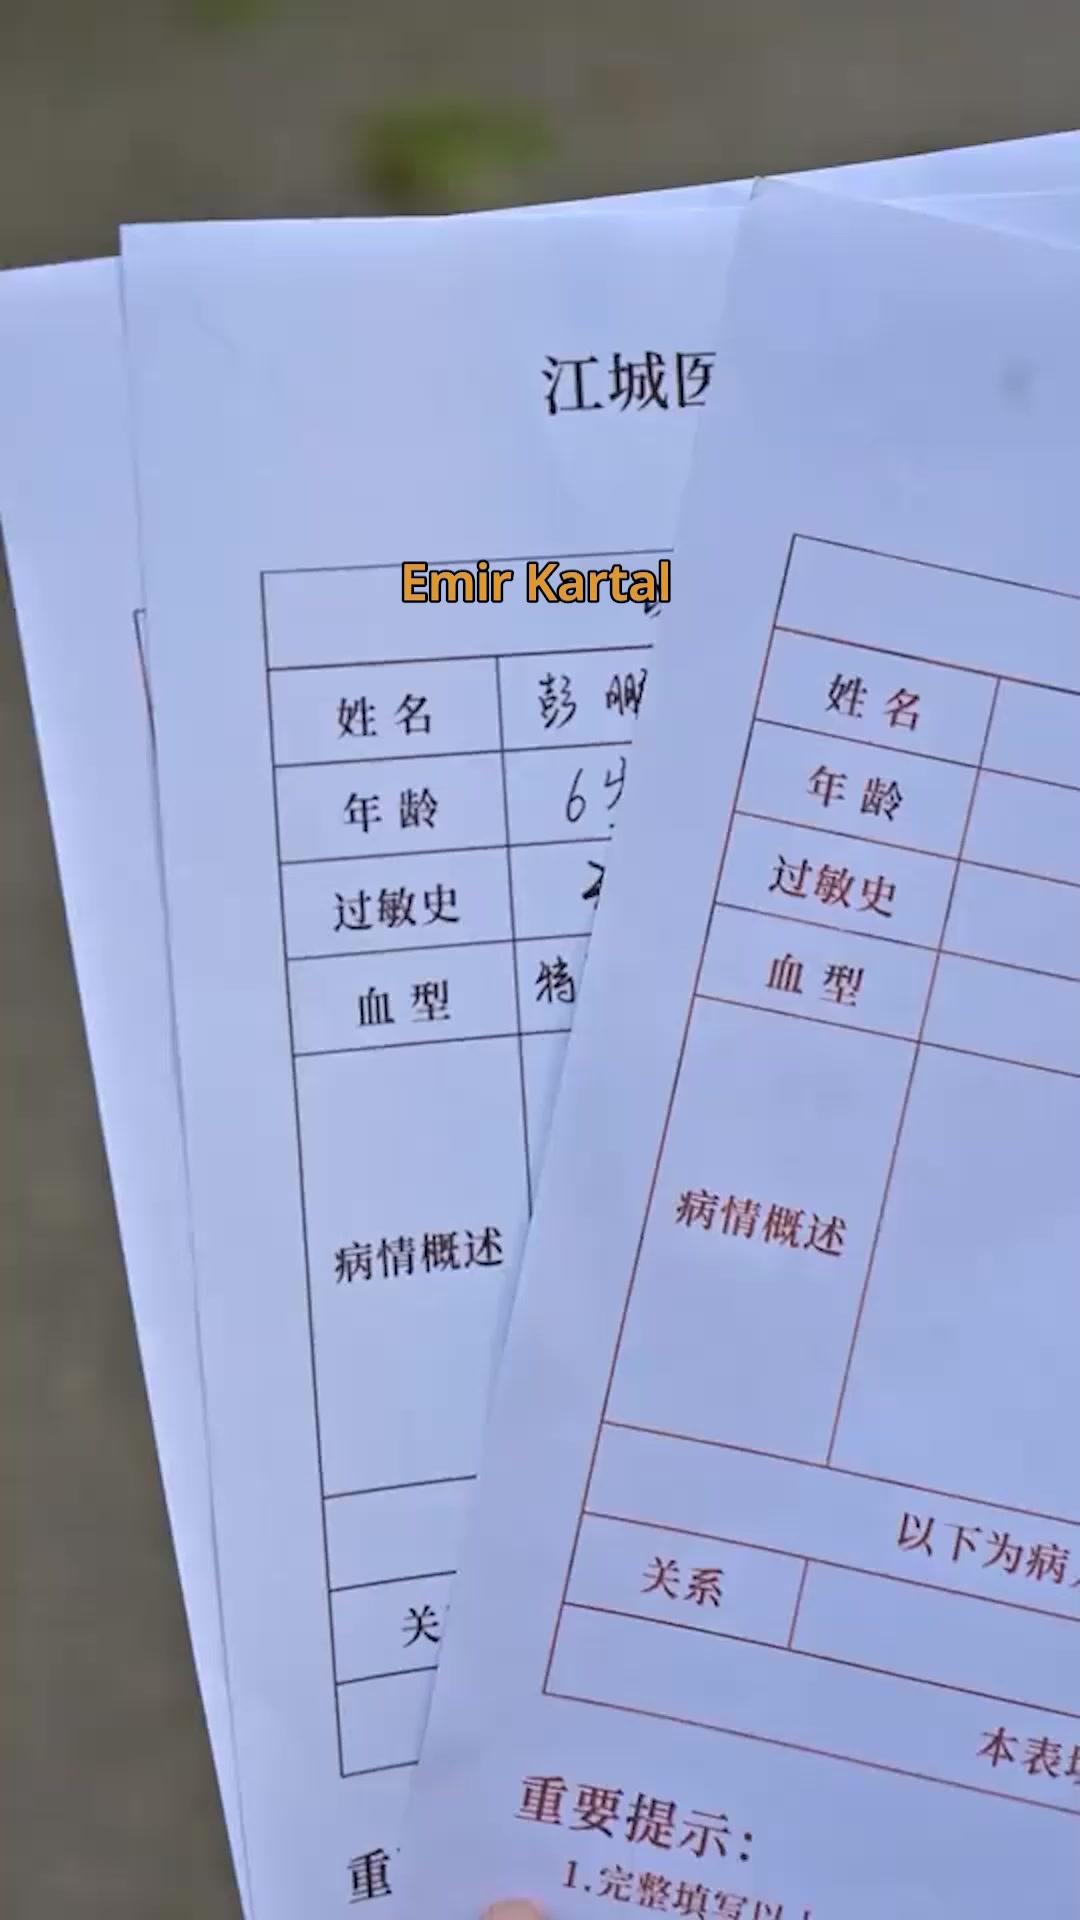 江城医
Emir Kartal
姓名 彭鹏
年龄 65
过敏史
血型 特
病情概述
关
重
姓名
年龄
过敏史
血型
病情概述
以下为病人
关系
本表填
重要提示:
1.完整填写以上